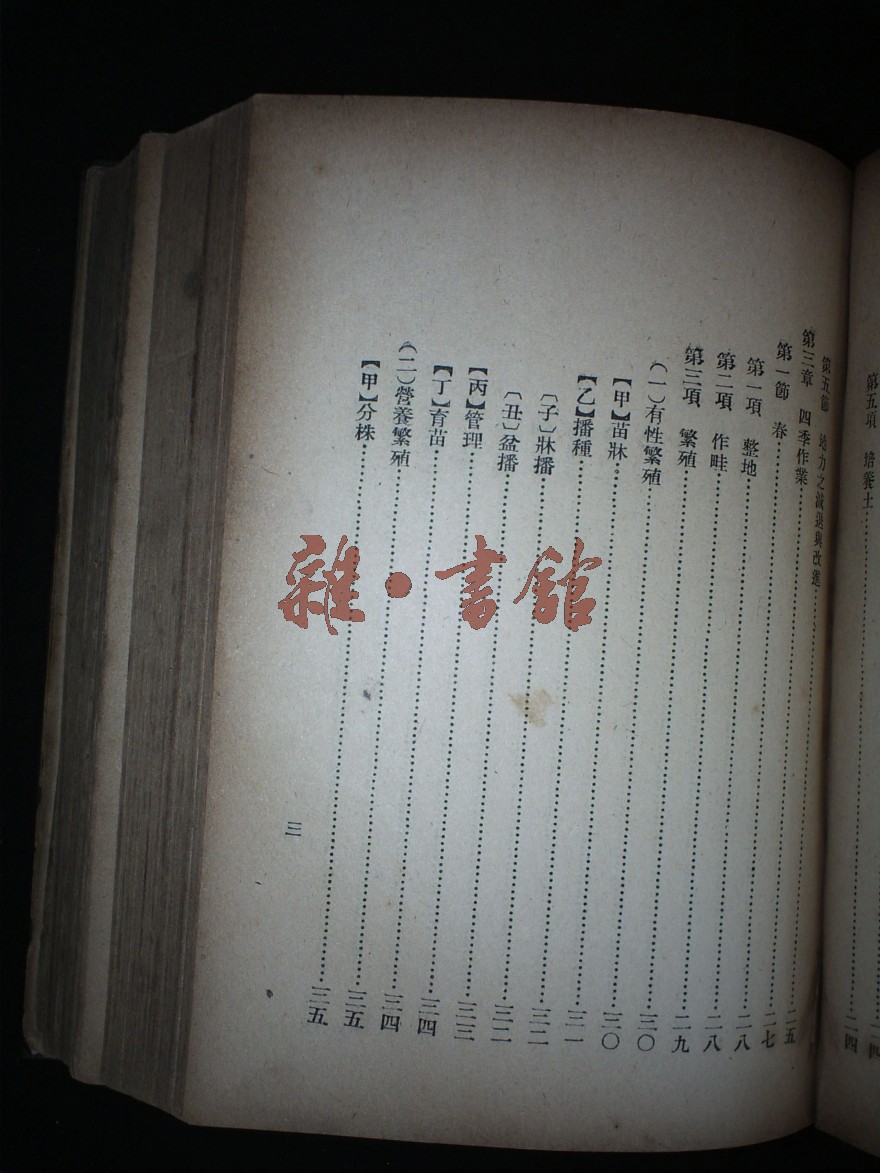 第五項　培養土……二四
第五節　地力之減退與改進……二五
第三章　四季作業……二七
第一節　春……二八
第一項　整地……二八
第二項　作畦……二九
第三項　繁殖……三〇
(一)有性繁殖……三〇
【甲】苗牀……三一
【乙】播種……三二
〔子〕牀播……三二
〔丑〕盆播……三三
【丙】管理……三四
【丁】育苗……三四
(二)營養繁殖……三五
【甲】分株……三五
三
雜·書館